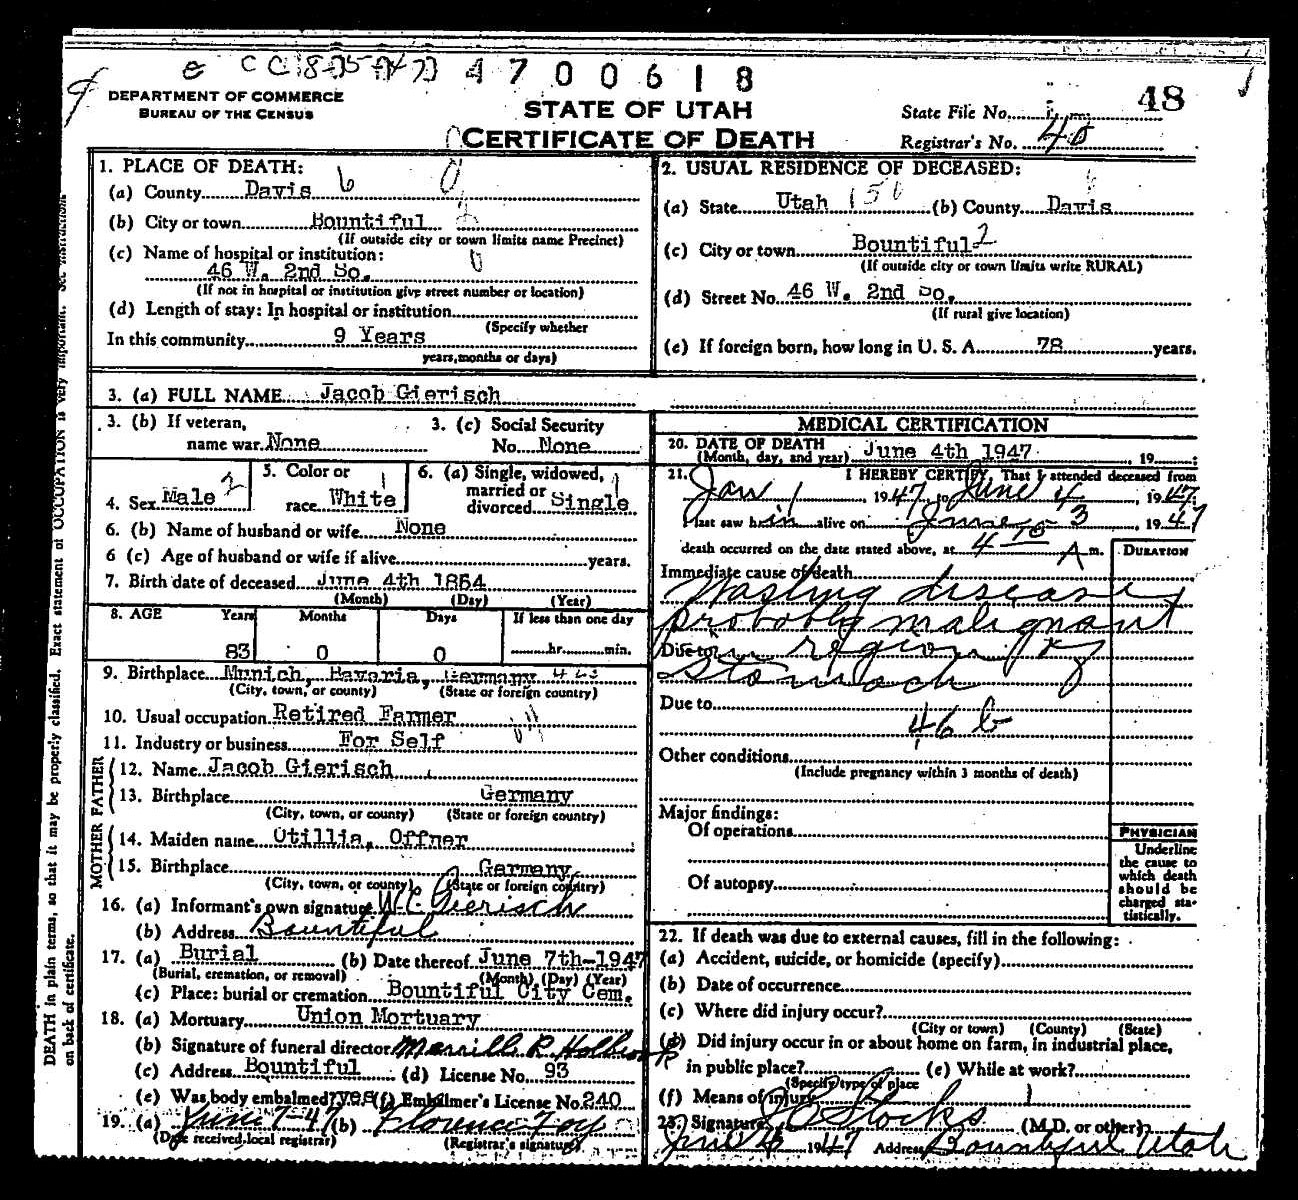 4700618
48
DEPARTMENT OF COMMERCE
BUREAU OF THE CENSUS
STATE OF UTAH
CERTIFICATE OF DEATH
State File No.
Registrar's No. 40
1. PLACE OF DEATH:
(a) County Davis 6
(b) City or town Bountiful
(If outside city or town limits name Precinct)
(c) Name of hospital or institution:
46 W. 2nd So.
(If not in hospital or institution give street number or location)
(d) Length of stay: In hospital or institution
(Specify whether
In this community 9 Years
years, months or days)
2. USUAL RESIDENCE OF DECEASED:
(a) State Utah 150 (b) County Davis
(c) City or town Bountiful 2
(If outside city or town limits write RURAL)
(d) Street No 46 W. 2nd So.
(If rural give location)
(e) If foreign born, how long in U. S. A. 78 years.
3. (a) FULL NAME Jacob Gierisch
3. (b) If veteran,
name war None
3. (c) Social Security
No. None
4. Sex Male 2
5. Color or
race White 1
6. (a) Single, widowed,
married or
divorced Single 1
6. (b) Name of husband or wife None
6 (c) Age of husband or wife if alive years.
7. Birth date of deceased June 4th 1864
(Month) (Day) (Year)
8. AGE Years Months Days If less than one day
83 0 0 hr. min.
9. Birthplace Munich, Bavaria, Germany
(City, town, or county) (State or foreign country)
10. Usual occupation Retired Farmer
11. Industry or business For Self
FATHER
12. Name Jacob Gierisch
13. Birthplace Germany
(City, town, or county) (State or foreign country)
MOTHER
14. Maiden name Otillia, Offner
15. Birthplace Germany
(City, town, or county) (State or foreign country)
16. (a) Informant's own signature W C Gierisch
(b) Address Bountiful
17. (a) Burial (b) Date thereof June 7th-1947
(Burial, cremation, or removal) (Month) (Day) (Year)
(c) Place: burial or cremation Bountiful City Cem.
18. (a) Mortuary Union Mortuary
(b) Signature of funeral director Merrill R Holbrook
(c) Address Bountiful (d) License No. 93
(e) Was body embalmed? yes (f) Embalmer's License No. 240
19. (a) June 7-47 (b) Florence Foy
(Date received, local registrar) (Registrar's signature)
MEDICAL CERTIFICATION
20. DATE OF DEATH
(Month, day, and year) June 4th 1947 , 19 ;
21. I HEREBY CERTIFY, That I attended deceased from
Jan 1 1947, to June 4 , 1947
I last saw him alive on June 3 , 1947
death occurred on the date stated above, at 4 10 A m.
DURATION
Immediate cause of death
Wasting disease
probably malignant
Due to in region of
Stomach
Due to
46 b
Other conditions
(Include pregnancy within 3 months of death)
Major findings:
Of operations
Of autopsy
PHYSICIAN
Underline
the cause to
which death
should be
charged sta-
tistically.
22. If death was due to external causes, fill in the following:
(a) Accident, suicide, or homicide (specify)
(b) Date of occurrence
(c) Where did injury occur?
(City or town) (County) (State)
(d) Did injury occur in or about home on farm, in industrial place,
in public place? (e) While at work?
(Specify type of place
(f) Means of injury
23. Signature Stocks (M.D. or other)
June 1947 Address Bountiful Utah
DEATH in plain terms, so that it may be properly classified. Exact statement of OCCUPATION is very important. See instructions
on back of certificate.